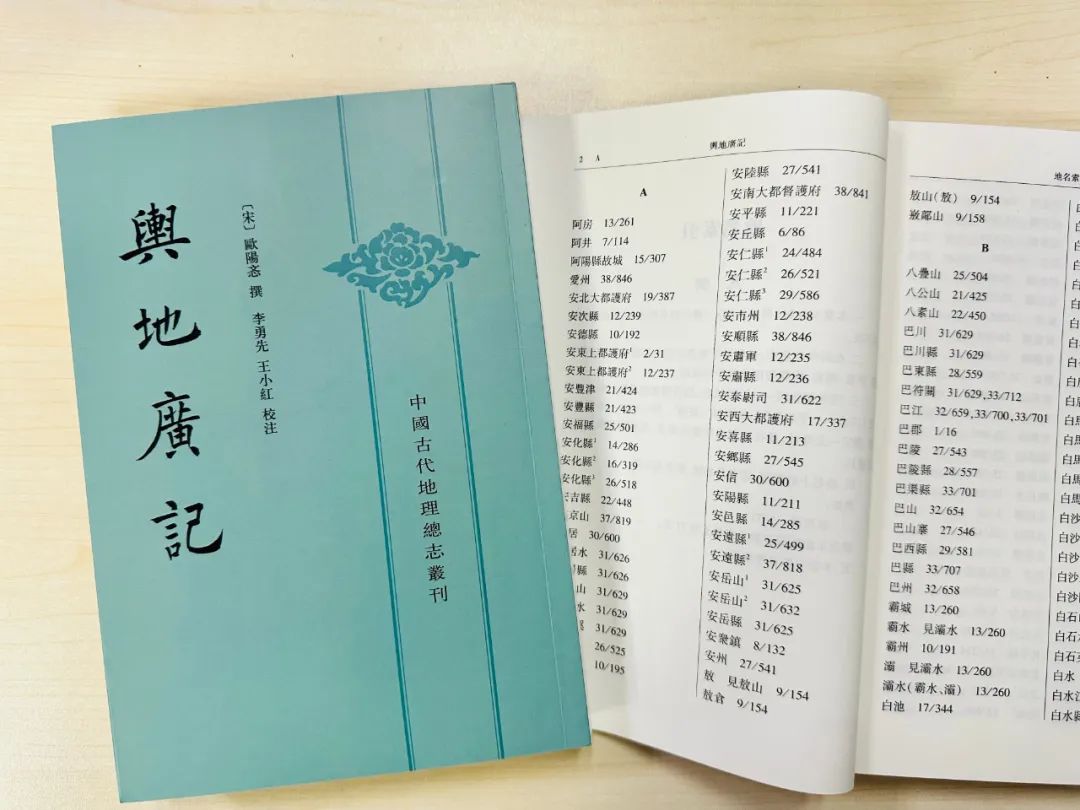 輿地廣記
〔宋〕歐陽忞 撰 李勇先 王小紅 校注
中國古代地理總志叢刊
2 A
輿地廣記
A
阿房 13/261
阿井 7/114
阿陽縣故城 15/307
愛州 38/846
安北大都護府 19/387
安次縣 12/239
安德縣 10/192
安東上都護府¹ 2/31
安東上都護府² 12/237
安豐津 21/424
安豐縣 21/423
安福縣 25/501
安化縣¹ 14/286
安化縣² 16/319
安化縣³ 26/518
安吉縣 22/448
京山 37/819
居 30/600
居水 31/626
縣 31/626
山 31/629
水 31/629
31/629
26/525
10/195
安陸縣 27/541
安南大都督護府 38/841
安平縣 11/221
安丘縣 6/86
安仁縣¹ 24/484
安仁縣² 26/521
安仁縣³ 29/586
安市州 12/238
安順縣 38/846
安肅軍 12/235
安肅縣 12/236
安泰尉司 31/622
安西大都護府 17/337
安喜縣 11/213
安鄉縣 27/545
安信 30/600
安陽縣 11/211
安邑縣 14/285
安遠縣¹ 25/499
安遠縣² 37/818
安岳山¹ 31/625
安岳山² 31/632
安岳縣 31/625
安衆鎮 8/132
安州 27/541
敖 見敖山 9/154
敖倉 9/154
地名索
敖山(敖) 9/154
9/158
B
八疊山 25/504
八公山 21/425
八素山 22/450
巴川 31/629
巴川縣 31/629
巴東縣 28/559
巴符關 31/629,33/712
巴江 32/659,33/700,33/701
巴郡 1/16
巴陵 27/543
巴陵縣 28/557
巴渠縣 33/701
巴山 32/654
巴山寨 27/546
巴西縣 29/581
巴縣 33/707
巴州 32/658
霸城 13/260
霸水 見灞水 13/260
霸州 10/191
灞 見灞水 13/260
灞水(霸水、灞) 13/260
白池 17/344
白
白
白
白
白
白
白馬
白馬
白馬
白沙
白沙
白沙
白石
白石
白石
白水
白水
白水縣